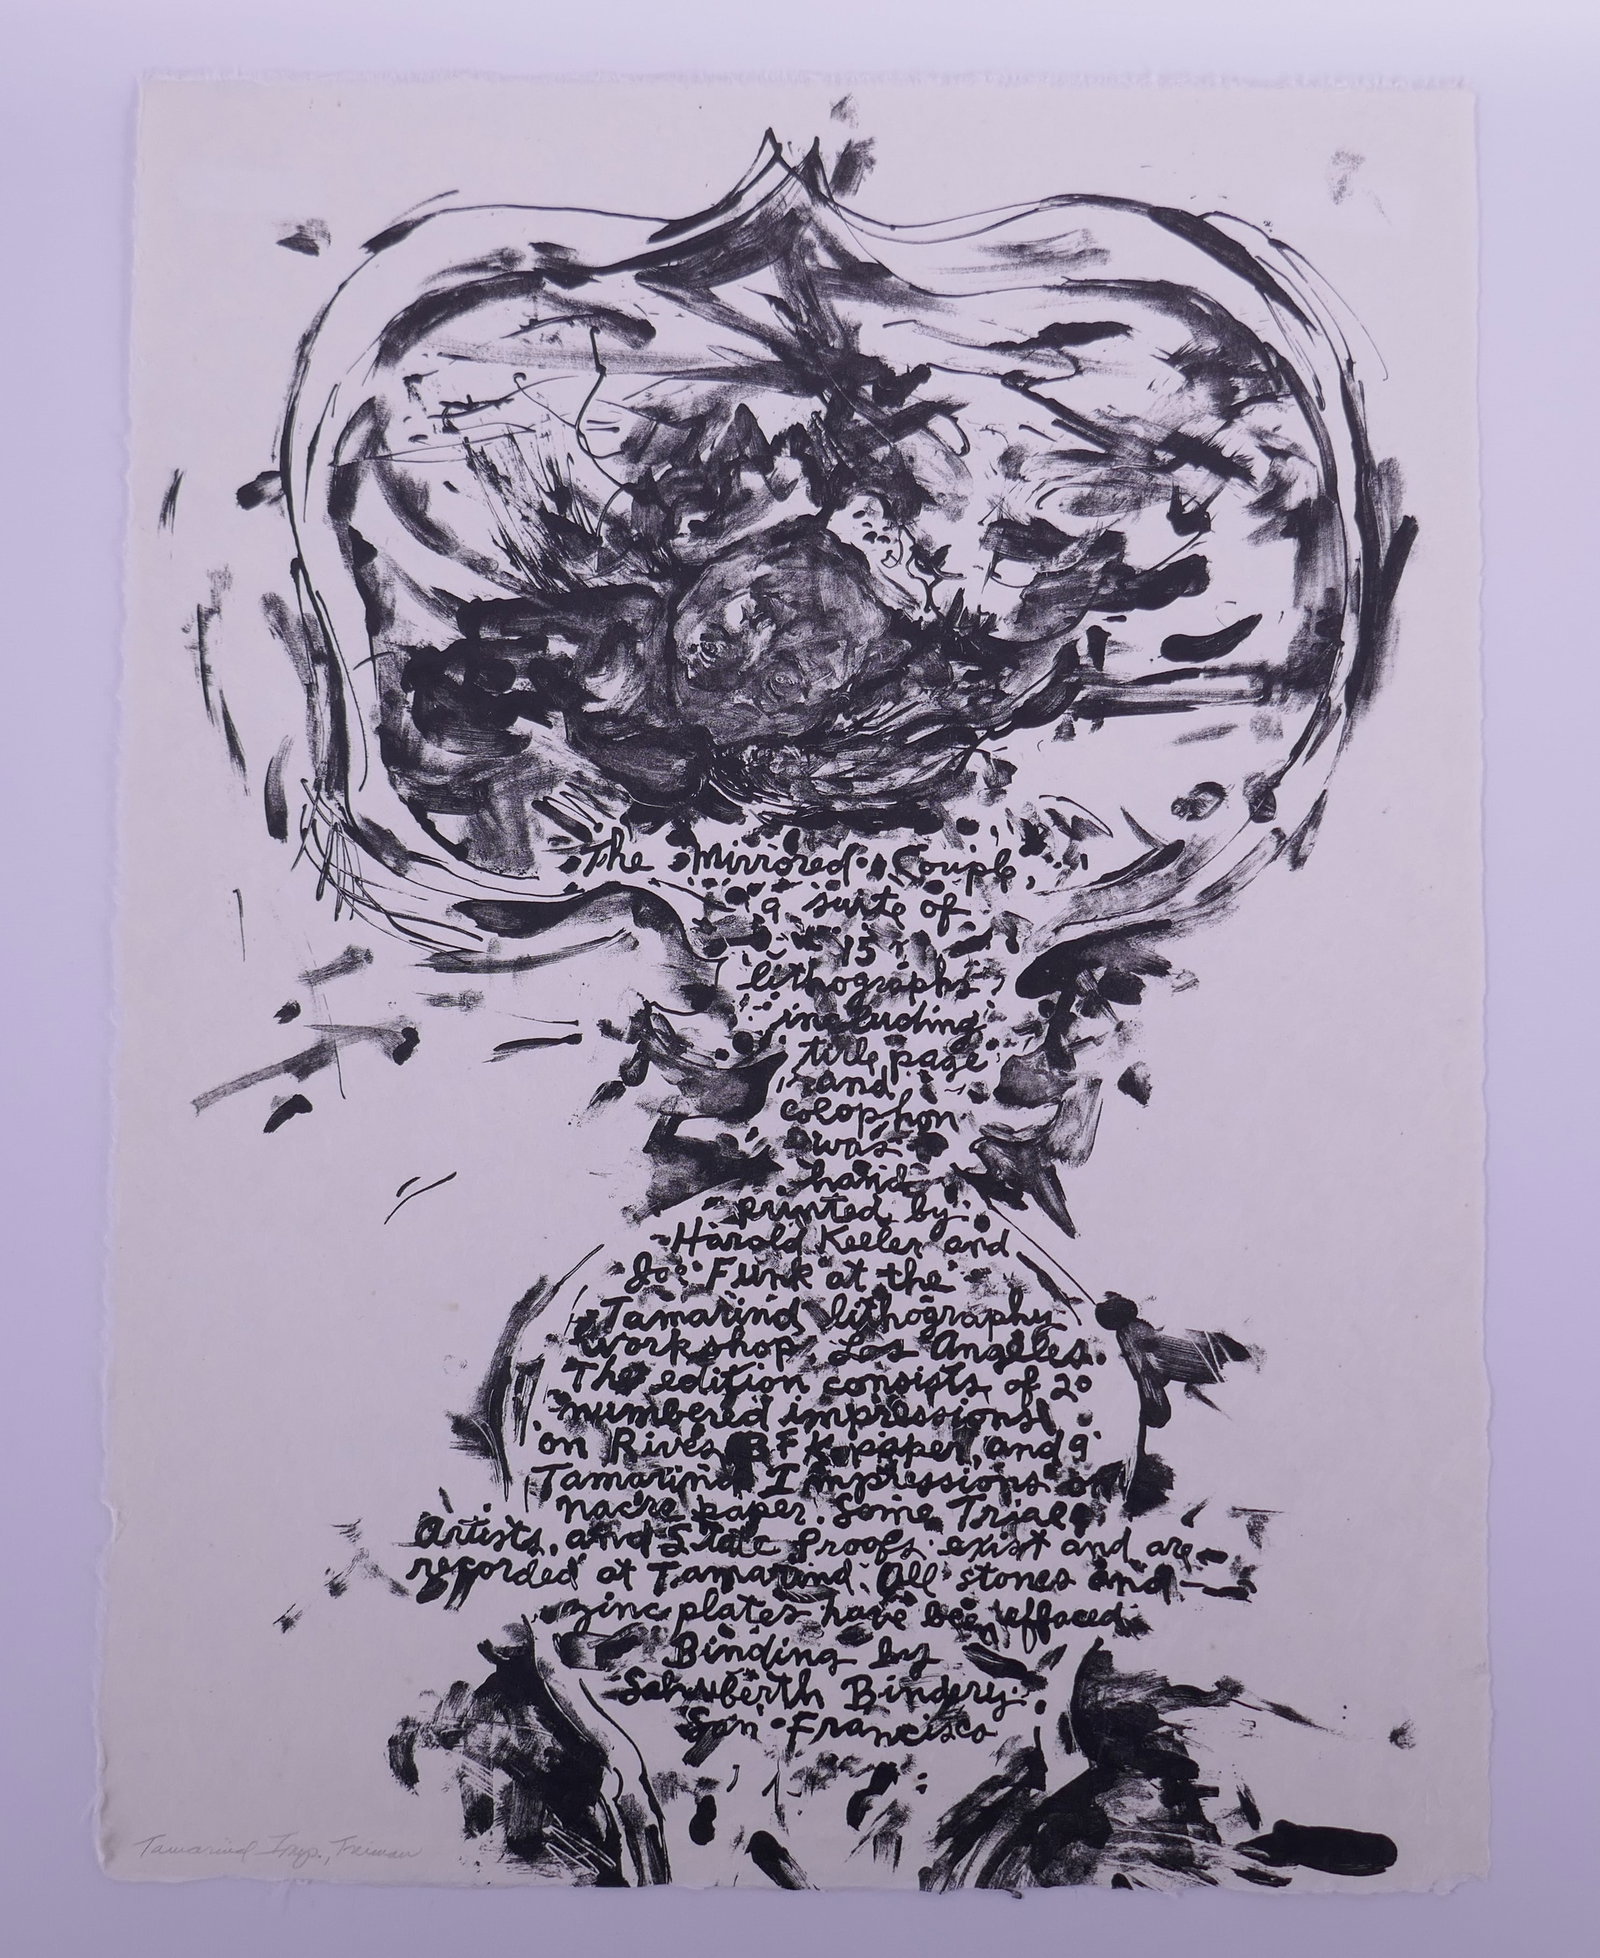 The Mirrored Couple,
a suite of
15
lithographs
including
title page
and
colophon
was
hand
printed by
Harold Keeler and
Jo Funk at the
Tamarind lithography
workshop, Los Angeles.
The edition consists of 20
numbered impressions
on Rives BFK paper, and 9
Tamarind Impressions on
nacre paper. Some Trial,
Artists, and State Proofs exist and are
recorded at Tamarind. All stones and
zinc plates have been effaced
Binding by
Schuberth Bindery
San Francisco
Tamarind Imp., Freiman